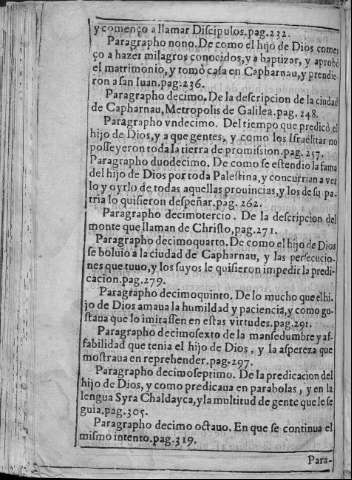 y començo a llamar Discipulos.pag.232.
Paragrapho nono.De como el hijo de Dios comen
ço a hazer milagros conocidos,y a baptizar, y aprobó
el matrimonio, y tomó casa en Capharnau,y prendie
ron a san Iuan.pag.236.
Paragrapho decimo.De la descripcion de la ciudad
de Capharnau,Metropolis de Galilea.pag. 248.
Paragrapho vndecimo. Del tiempo que predicó,el
hijo de Dios,y a que gentes, y como los Israelitas no
posseyeron toda la tierra de promission.pag.257.
Paragrapho duodecimo. De como se estendio la fama
del hijo de Dios por toda Palestina, y concurrian a ver
lo y oyrlo de todas aquellas prouincias,y los de su pa
tria lo quisieron despeñar.pag.262.
Paragrapho decimotercio. De la descripcion del
monte que llaman de Christo,pag.271.
Paragrapho decimoquarto.De como el hijo de Dios
se boluió a la ciudad de Capharnau, y las persecucio-
nes que tuuo,y los suyos le quisieron impedir la predi-
cacion.pag.279.
Paragrapho decimoquinto. De lo mucho que el hi-
jo de Dios amaua la humildad y paciencia,y como gu-
staua que lo imitassen en estas virtudes.pag.291.
Paragrapho decimosexto de la mansedumbre y af-
fabilidad que tenia el hijo de Dios, y la aspereza que
mostraua en reprehender.pag.297.
Paragrapho decimoseptimo. De la predicacion del
hijo de Dios, y como predicaua en parabolas, y en la
lengua Syra Chaldayca,y la multitud de gente que le se
guia.pag.305.
Paragrapho decimo octauo. En que se continua el
mismo intento.pag.319.
Para-